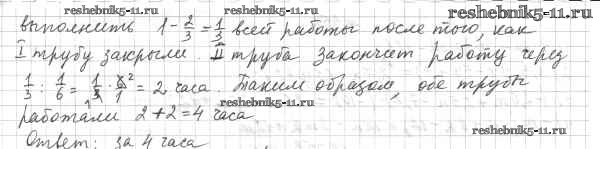 reshebnik5-11.ru
reshebnik5-11.ru
выполнить 1 - 2/3 = 1/3 всей работы после того, как
I трубу закрыли. II труба закончит работу через
1/3 : 1/6 = 1/3 · 6²/1 = 2 часа. Таким образом, обе трубы
reshebnik5-11.ru
работали 2 + 2 = 4 часа
reshebnik5-11.ru
Ответ: за 4 часа